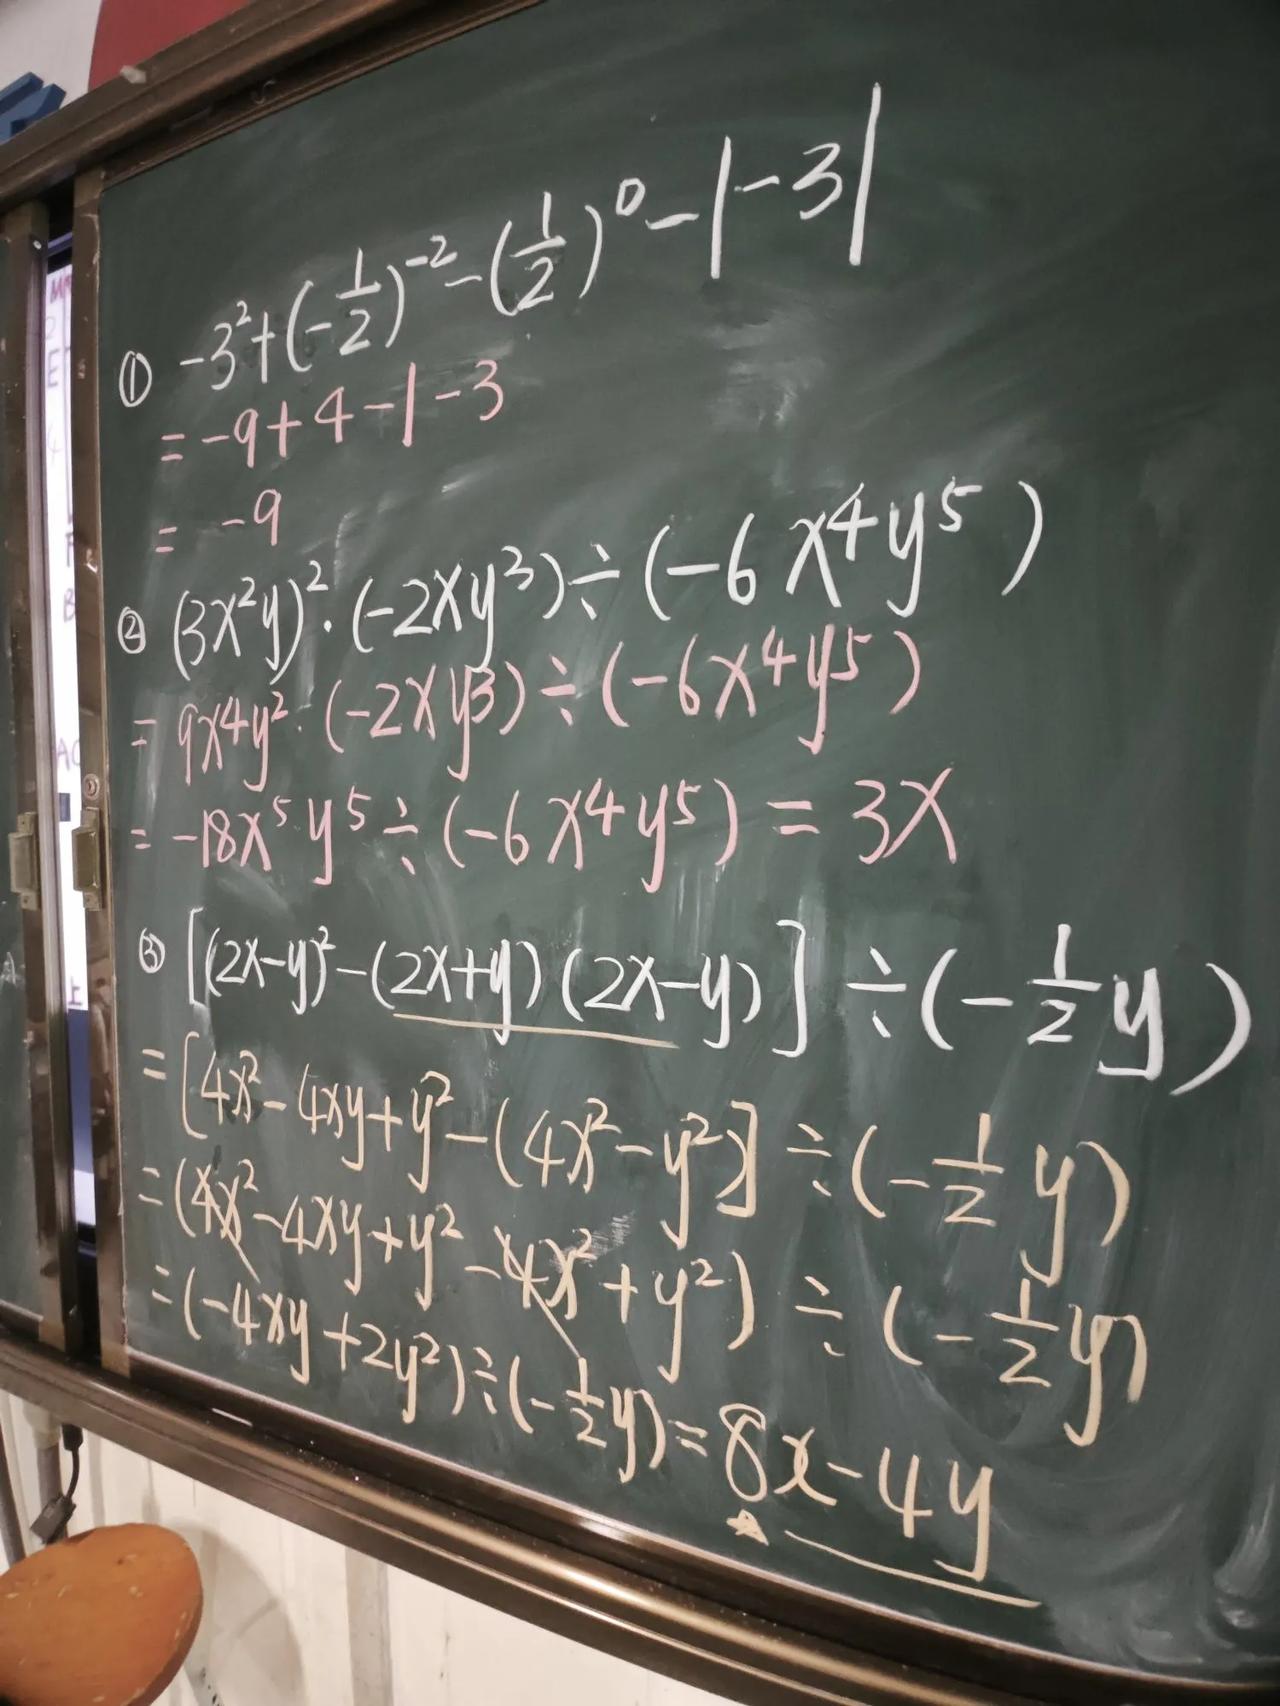 ① -3²+(-1/2)⁻²-(1/2)⁰-|-3|
= -9+4-1-3
= -9
② (3x²y)²·(-2xy³)÷(-6x⁴y⁵)
= 9x⁴y²·(-2xy³)÷(-6x⁴y⁵)
= -18x⁵y⁵÷(-6x⁴y⁵) = 3x
③ [(2x-y)²-(2x+y)(2x-y)]÷(-1/2y)
= [4x²-4xy+y²-(4x²-y²)]÷(-1/2y)
= (4x²-4xy+y²-4x²+y²)÷(-1/2y)
= (-4xy+2y²)÷(-1/2y)=8x-4y